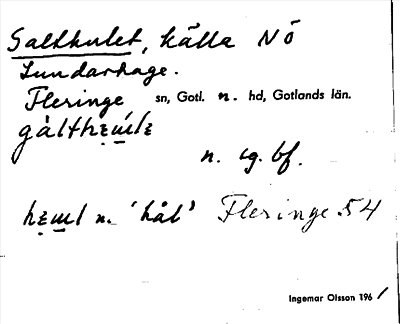 Salthulet, källa NÖ
Lundarhage.
Fleringe sn, Gotl. n. hd, Gotlands län.
n. sg. bf.
n. 'hål' Fleringe 54
Ingemar Olsson 1961